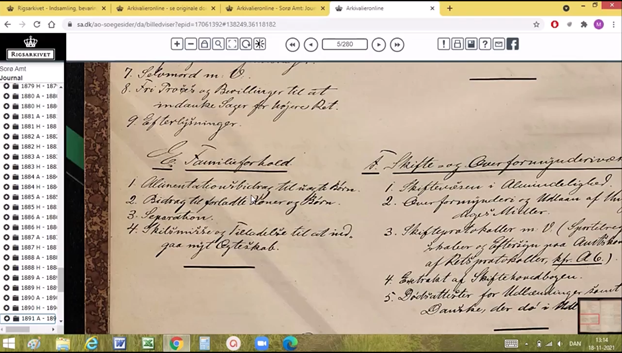 Rigsarkivet - Indsamling, bevarin
Arkivalieronline - se originale do
Arkivalieronline - Sorø Amt: Jour
Arkivalieronline
sa.dk/ao-soegesider/da/billedviser?epid=17061392#138249,36118182
RIGSARKIVET
5/280
Sorø Amt
Journal
1879 H - 187
1880 A - 188
1880 H - 188
1881 A - 188
1881 H - 188
1882 A - 188
1882 H - 188
1883 A - 188
1883 H - 188
1884 A - 188
1884 H - 188
1885 A - 188
1885 H - 188
1886 A - 188
1886 H - 188
1887 A - 188
1887 H - 188
1888 A - 188
1888 H - 188
1889 A - 188
1889 H - 188
1890 A - 189
1890 H - 189
1891 A - 189
7. Selvmord m. V.
8. Fri Proces og Bevillinger til at
indanke Sager for højere Ret.
9. Efterlysninger.
E. Familieforhold
1. Alimentationsbidrag til uægte Børn.
2. Bidrag til forladte Koner og Børn.
3. Separation.
4. Skilsmisse og Tilladelse til at ind-
gaa nyt Ægteskab.
F. Skifte- og Overformynderivæs
1. Skiftevæsen i Almindelighed.
2. Overformynderi og Udlaan af
Midler.
3. Skifteprotokoller m. V.
af Retsprotokoller, kfr. A 6.)
4. Extrakt af Skiftehovedbogen.
5. Dødsattester for Udlændinge samt
Danske, der dø i Udl
DAN
13:54
18-11-2021